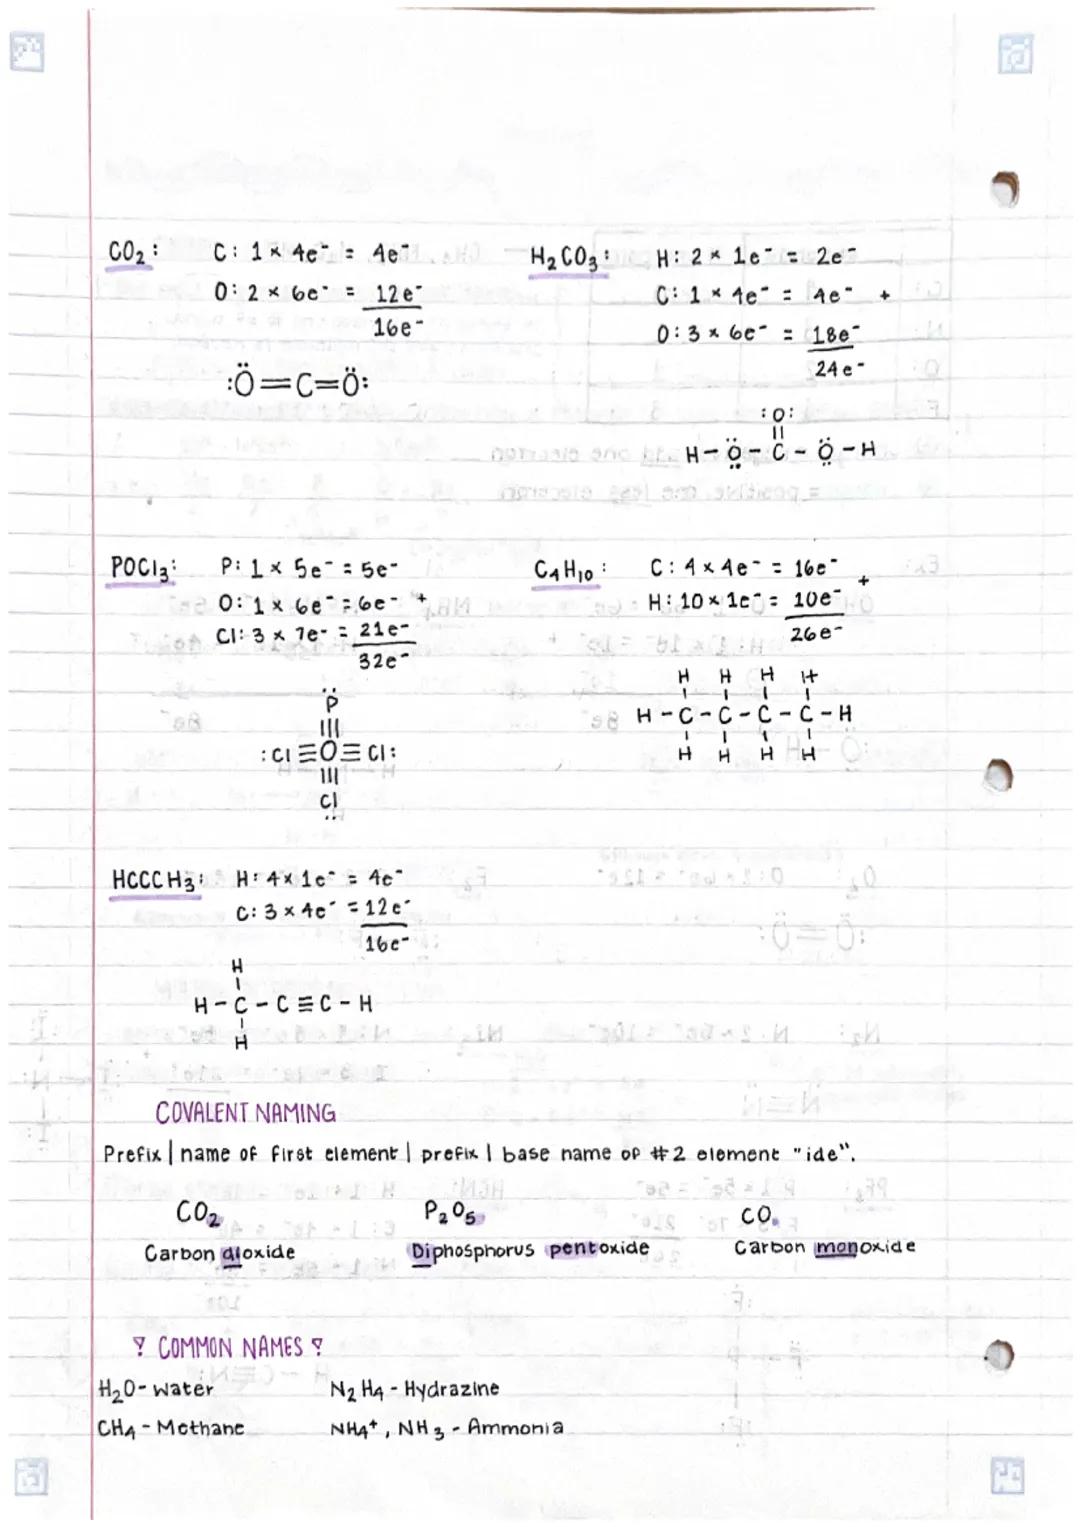 CO₂: C: 1 × 4e⁻ = 4e⁻
O: 2 × 6e⁻ = 12e⁻
16e⁻
:Ö=C=Ö:
H₂CO₃: H: 2 × 1e⁻ = 2e⁻
C: 1 × 4e⁻ = 4e⁻ +
O: 3 × 6e⁻ = 18e⁻
24e⁻
:O:
||
H-Ö-C-Ö-H
POCl₃: P: 1 × 5e⁻ = 5e⁻
O: 1 × 6e⁻ = 6e⁻ +
Cl: 3 × 7e⁻ = 21e⁻
32e⁻
P
|||
:Cl≡O≡Cl:
|||
Cl
C₄H₁₀: C: 4 × 4e⁻ = 16e⁻ +
H: 10 × 1e⁻ = 10e⁻
26e⁻
H H H H
H-C-C-C-C-H
H H H H
HCCCH₃: H: 4 × 1e⁻ = 4e⁻
C: 3 × 4e⁻ = 12e⁻
16e⁻
H
H-C-C≡C-H
H
COVALENT NAMING
Prefix | name of first element | prefix | base name of #2 element "ide".
CO₂ P₂O₅ CO
Carbon dioxide Diphosphorus pentoxide Carbon monoxide
COMMON NAMES
H₂O - Water N₂H₄ - Hydrazine
CH₄ - Methane NH₄⁺, NH₃ - Ammonia